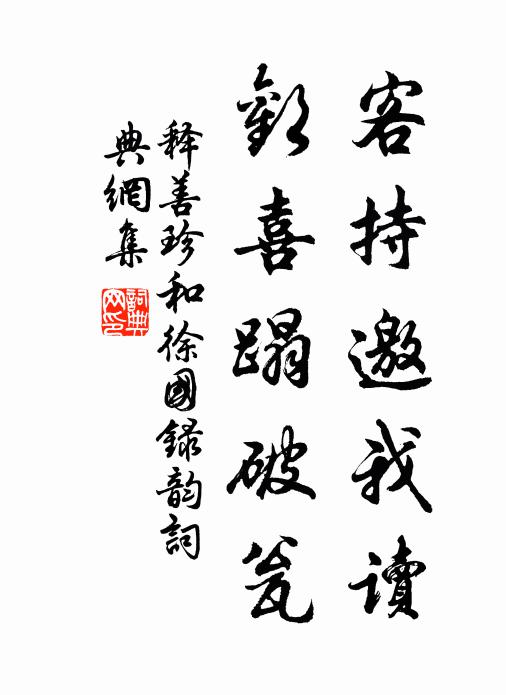 客持邀我讀
歡喜蹋破瓮
释善珍和徐國録韵詞
典網集
詞典網印